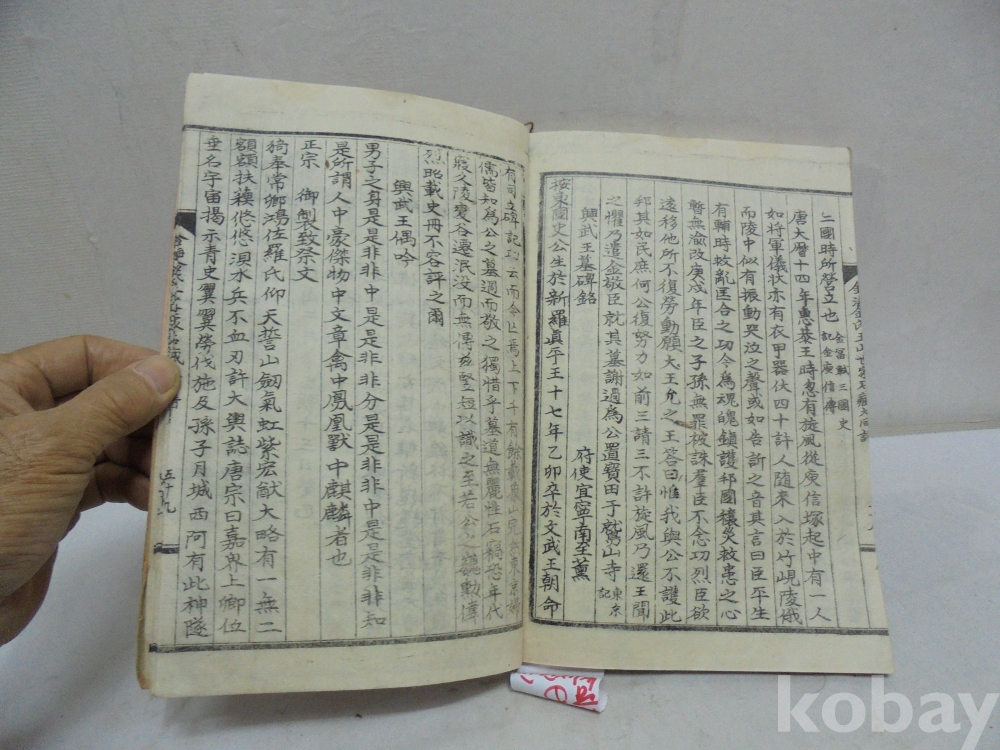 三國時所營立也 金富軾三國史
記金庾信傳
唐大曆十四年惠恭王時忽有旋風從庾信塚起中有一人
如將軍儀狀亦有衣甲器仗四十許人隨來入於竹峴陵俄
而陵中似有振動哭泣之聲或如告訴之音其言曰臣平生
有輔時救亂匡合之功今爲魂魄鎭護邦國攘災救患之心
暫無渝改庚戌年臣之子孫無罪被誅羣臣不念功烈臣欲
遠移他所不復勞動願大王允之王答曰惟我與公不護此
邦其如民庶何公復努力如前三請三不許旋風乃還王聞
之懼乃遣金敬臣就其墓謝過爲公置寶田于鷲山寺 東京
記
興武王墓碑銘
府使宜寧南至薰
按東國史公生於新羅眞平王十七年乙卯卒於文武王朝命
有司立碑記功云而今止爲上下千有餘
儒皆知爲公之墓過而敬之獨惜乎墓道無麗牲石竊恐年代
寢久陵變谷遷泯没而無傳玆竪短以識之至若公之勳偉
烈昭載史冊不容評之爾
興武王偶吟
男子之身是是非非中是非非分是是是非非中是是非非知
是所謂人中豪傑物中文章禽中鳳凰獸中麒麟者也
正宗 御製致祭文
猗奉常卿鴻佐羅氏仰天誓山劒氣虹紫宏猷大略有一無二
額額扶蘇悠悠浿水兵不血刃許大輿誌唐宗曰嘉畀上卿位
垂名宇宙揭示青史翼翼勞伐施及孫子月城西阿有此神隧
五十九
kobay